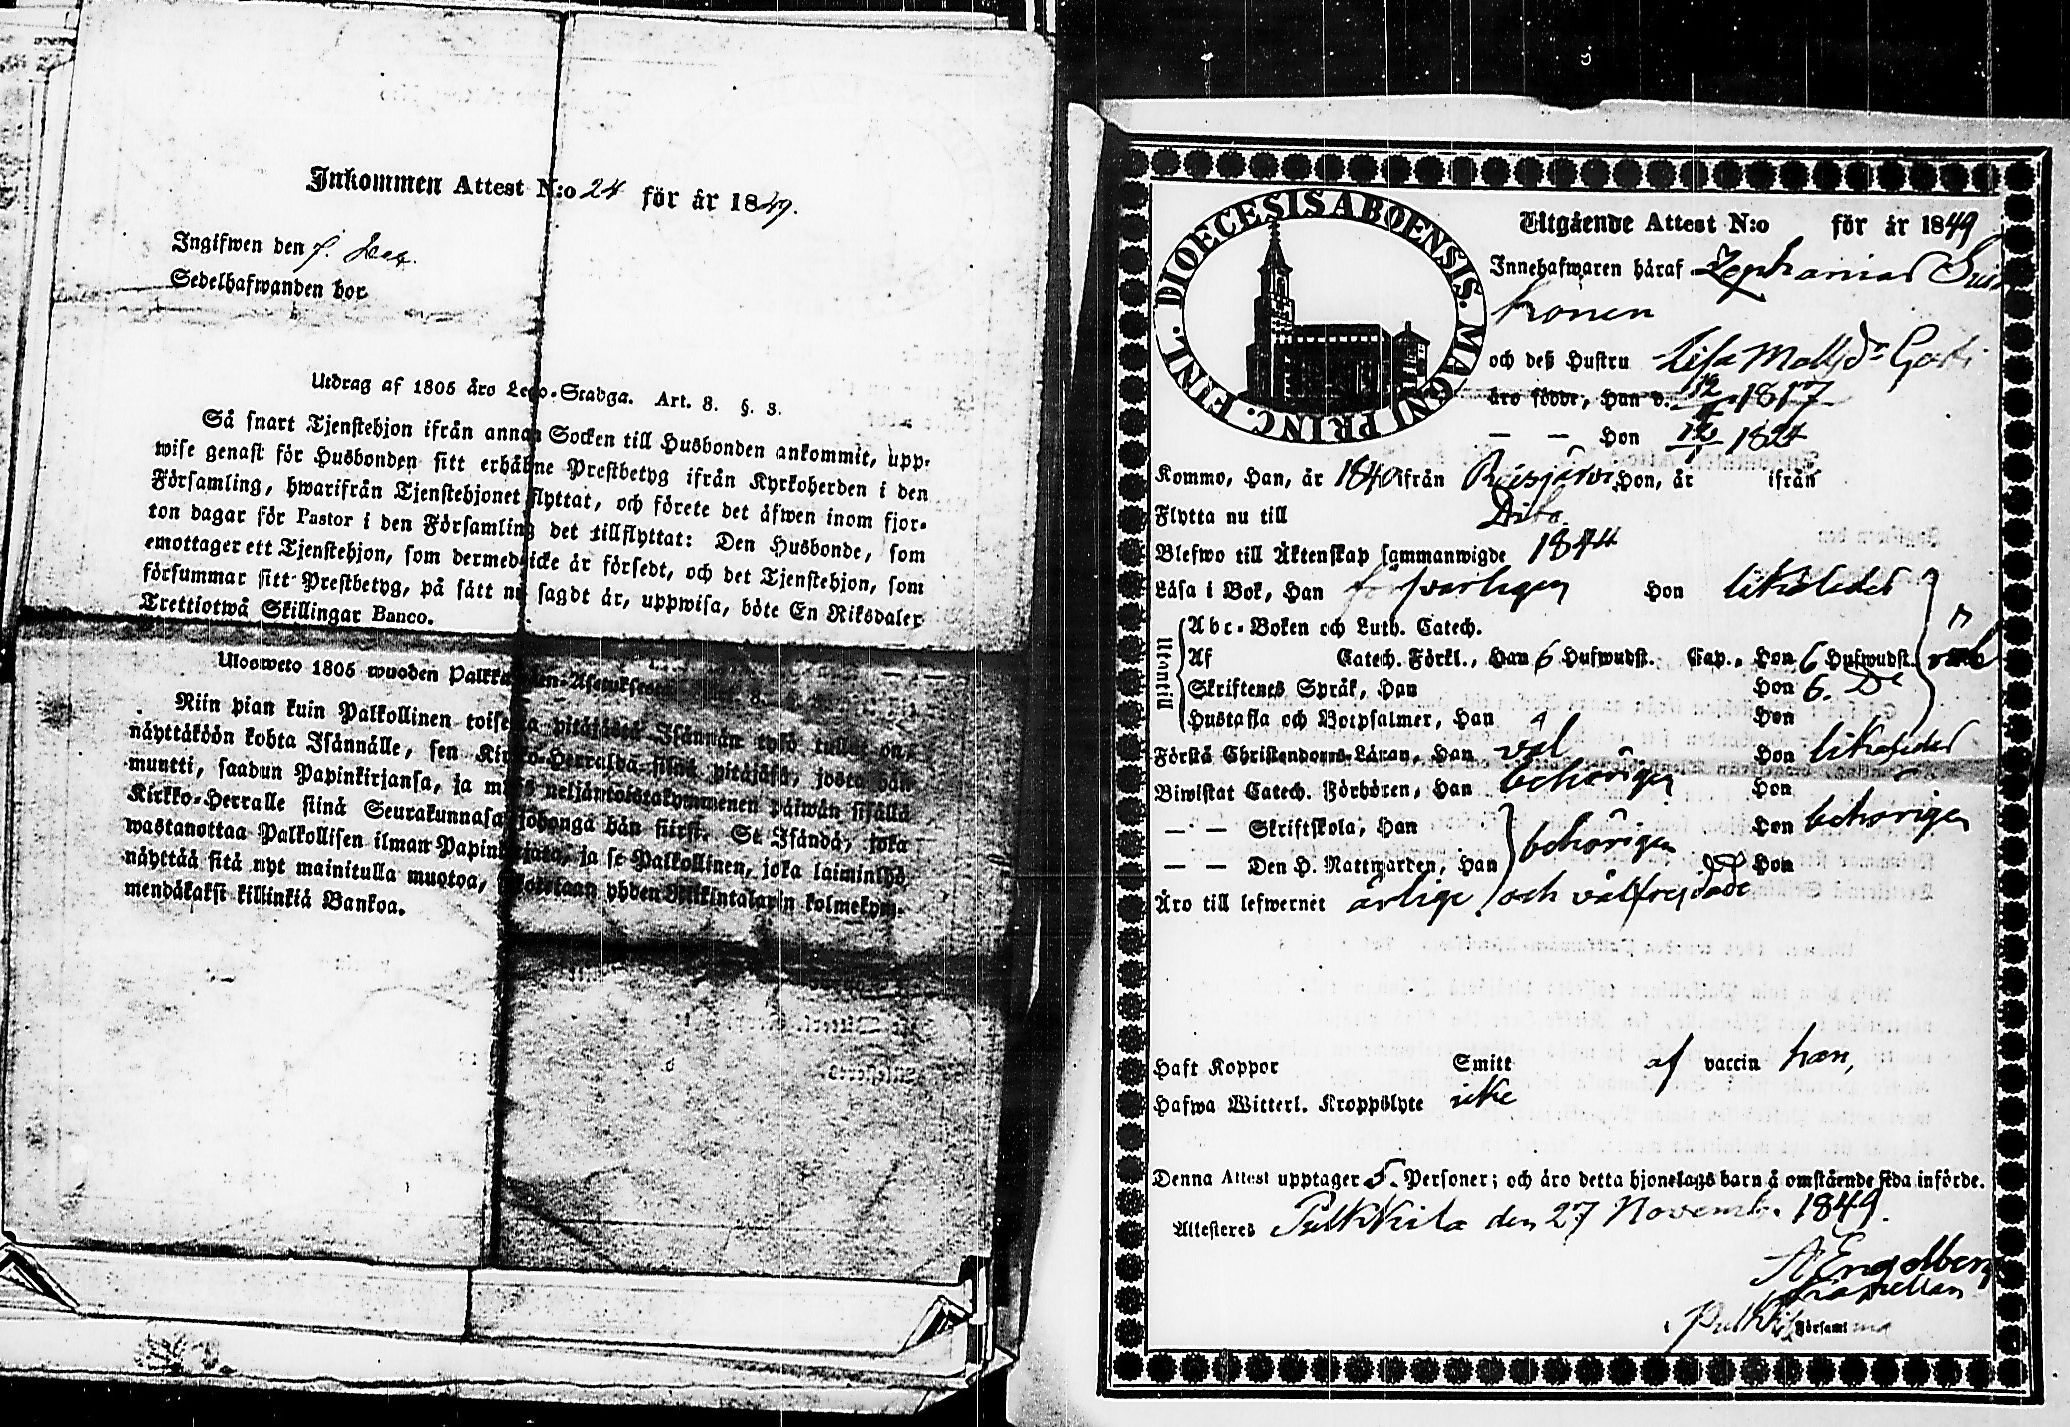 Inkommen Attest N:o 24 för år 1849.
Ingifwen den 7. Dec.
Sedelhafwanden bor
Utdrag af 1805 års Lego-Stadga. Art. 8. §. 3.
Så snart Tjenstehjon ifrån annan Socken till Husbonden ankommit, upp-
wise genast för Husbonden sitt erhåldne Prestbetyg ifrån Kyrkoherden i den
Församling, hwarifrån Tjenstehjonet flyttat, och förete det äfwen inom fjor-
ton dagar för Pastor i den Församling det tillflyttat: Den Husbonde, som
emottager ett Tjenstehjon, som dermed icke är försedt, och det Tjenstehjon, som
försummar sitt Prestbetyg, på sätt nu sagdt är, uppwisa, böte En Riksdaler
Trettiotwå Skillingar Banco.
Ulosweto 1805 wuoden
Niin pian kuin Palkollinen toisesta pitäjästä Isännän työ tullut on,
näyttäköön kohta Isännälle, sen Kirkko-Herralda siinä pitäjäsä, josta hän
muutti, saadun Papinkirjansa, ja myös neljäntoistakymmenen päiwän sisällä
Kirkko-Herralle siinä Seurakunnasa, johonga hän siirsi. Se Isändä, joka
wastanottaa Palkollisen ilman Papinkirjata, ja se Palkollinen, joka laiminlyö
näyttää sitä nyt mainitulla muotoa, yhden Riksintalarin kolmekym-
mendäkaksi killinkiä Bankoa.
DIOECESIS ABOENSIS. MAGNI PRINC. FINL.
Utgående Attest N:o för år 1849
Innehafwaren häraf Zephanias
konen
och deß Hustru Lisa Mattsdr
äro födde, Han d. 12/ 1817
— — Hon 12/ 1824
Kommo, Han, år 1840 ifrån Reisjärvi Hon, år ifrån
Flytta nu till
Blefwo till Äktenskap sammanwigde 1844
Läsa i Bok, Han försvarligen Hon likaledes
Utantill
Abc-Boken och Luth. Catech.
Af Catech. Förkl., Han 6 Hufwudst. Cap., Hon 6 Hufwudst.
Skriftenes Språk, Han Hon 6. Do
Hustafla och Botpsalmer, Han Hon
Förstå Christendoms-Läran, Han väl Hon likaledes
Biwistat Catech. Förhören, Han behörigen Hon
— — Skriftskola, Han Hon behörigen
— — Den H. Nattwarden, Han behörigen Hon
Äro till lefwernet ärlige och välfrejdade
Haft Koppor Smitt af vaccin han,
Hafwa Witterl. Kroppslyte icke
Denna Attest upptager 5. Personer; och äro detta hjonelags barn å omstående sida införde.
Attesteres Pulkkila den 27 Novemb. 1849.
A Engelberg
Capellan
i Pulkkila Församl